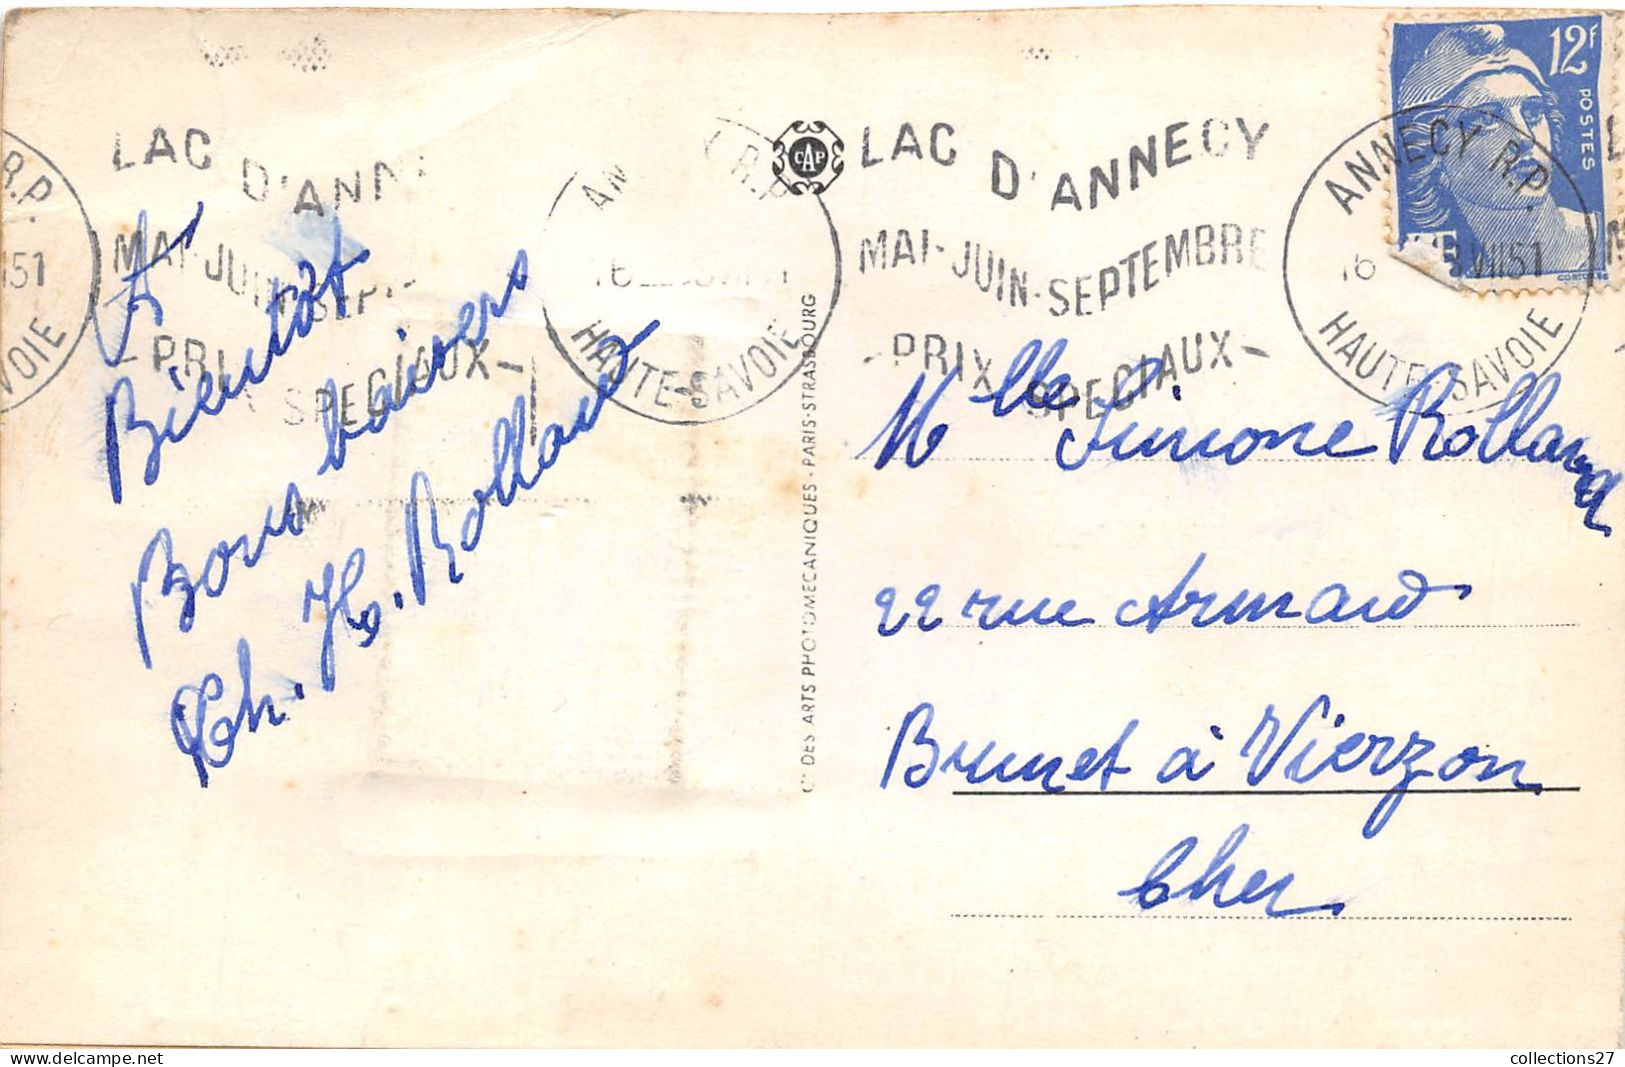 R.P.
51
VOIE
LAC D'ANN
MAI-JUIN-SEP
-PRI SPECIAUX-
R.P.
16
HAUTE-SAVOIE
CAP
LAC D'ANNECY
MAI-JUIN-SEPTEMBRE
-PRIX SPECIAUX-
ANNECY R.P.
16 VIII 51
HAUTE-SAVOIE
12F
POSTES
A
Bientôt
Bons baisers
Ch. H. Rolland
Cie DES ARTS PHOTOMECANIQUES - PARIS-STRASBOURG
Mlle Simone Rolland
22 rue Armand
Brunet à Vierzon
Cher
collections27